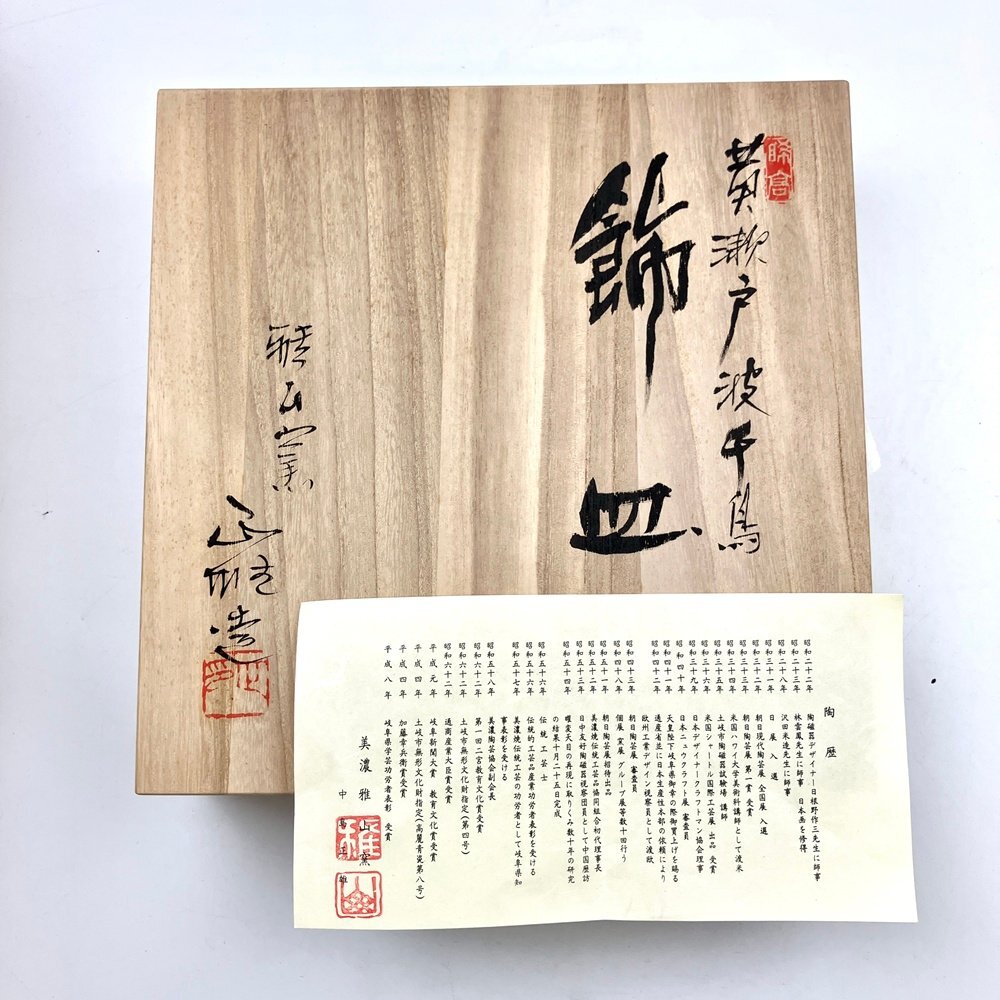 黄瀬戸波千鳥
飾皿
雅山窯
正雄造
陶歴
昭和二十二年 陶磁器デザイナー日根野作三先生に師事
昭和二十三年 林雲鳳先生に師事 日本画を修得
昭和二十八年 沢田米造先生に師事
昭和三十一年 日展入選
昭和三十二年 朝日現代陶芸展 全国展 入選
昭和三十三年 朝日陶芸展 第一賞 受賞
昭和三十四年 米国ハワイ大学美術科講師として渡米
昭和三十五年 土岐市陶磁器試験場 講師
昭和三十六年 米国シャートル国際工芸展 出品 受賞
昭和三十九年 日本デザイナークラフトマン協会理事
昭和四十年 日本ニュウクラフト展 審査員
昭和四十一年 天皇陛下岐阜県御幸の際御買上げを賜る
昭和四十二年 通産省並に日本生産性本部の依頼により
欧州工業デザイン視察員として渡欧
昭和四十三年 朝日陶芸展 審査員
昭和四十八年 個展 窯展 グループ展等数十回行う
昭和五十一年 朝日陶芸展招待出品
昭和五十二年 美濃焼伝統工芸品協同組合初代理事長
昭和五十三年 日中友好陶磁器視察団員として中国歴訪
昭和五十四年 曜変天目の再現に取りくみ数十年の研究
の結果十月二十五日完成
昭和五十六年 伝統工芸士
昭和五十六年 伝統的工芸品産業功労者表彰を受ける
昭和五十七年 美濃焼伝統工芸の功労者として岐阜県知
事表彰を受ける
昭和五十八年 美濃陶芸協会副会長
昭和六十二年 第一回二宮教育文化賞受賞
昭和六十二年 土岐市無形文化財指定(第四号)
昭和六十二年 通商産業大臣賞受賞
平成元年 岐阜新聞大賞 教育文化賞受賞
平成四年 土岐市無形文化財指定(高麗青瓷第八号)
平成四年 加藤幸兵衛賞受賞
平成八年 岐阜県学芸功労者表彰 受賞
美濃雅山窯
中島正雄